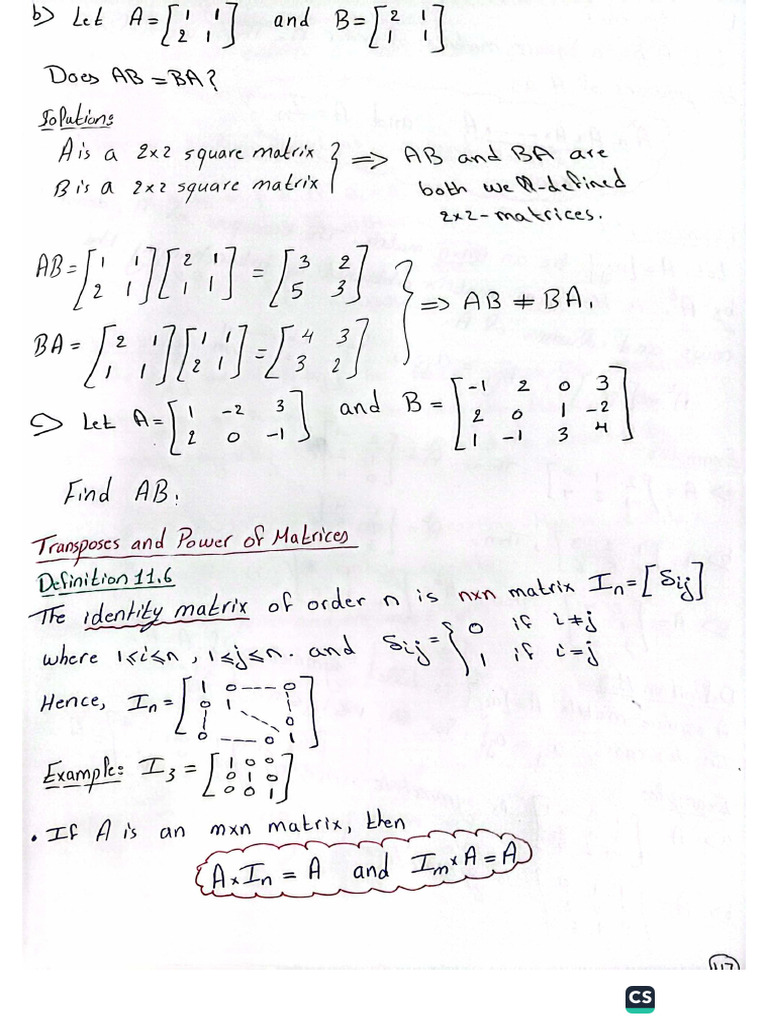 b) Let A = [1 1; 2 1] and B = [2 1; 1 1]
Does AB = BA?
Solution:
A is a 2x2 square matrix
B is a 2x2 square matrix } => AB and BA are
both well-defined
2x2-matrices.
AB = [1 1; 2 1] [2 1; 1 1] = [3 2; 5 3]
BA = [2 1; 1 1] [1 1; 2 1] = [4 3; 3 2] } => AB ≠ BA.
c) Let A = [1 -2 3; 2 0 -1] and B = [-1 2 0 3; 2 0 1 -2; 1 -1 3 4]
Find AB.
Transposes and Power of Matrices
Definition 11.6
The identity matrix of order n is nxn matrix In = [δij]
where 1≤i≤n, 1≤j≤n. and δij = { 0 if i≠j
1 if i=j
Hence, In = [1 0 --- 0; 0 1 \ |; | \ 0; 0 --- 0 1]
Example: I3 = [1 0 0; 0 1 0; 0 0 1]
• If A is an mxn matrix, then
A x In = A and Im x A = A
117
CS